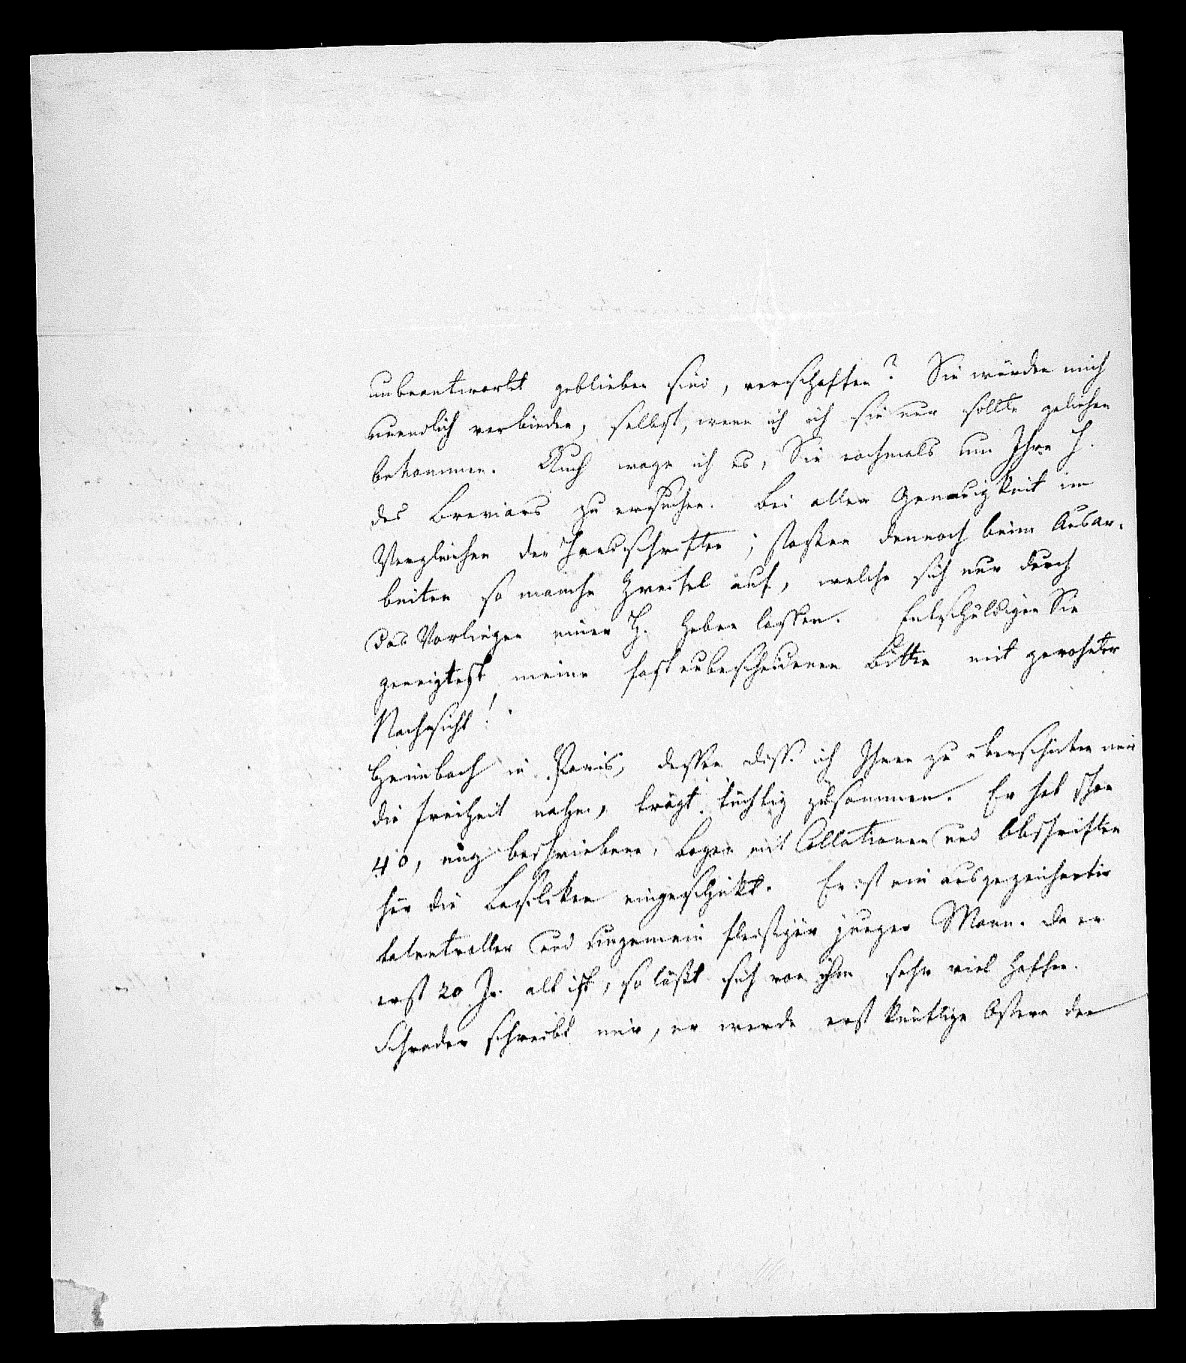 unbeantwortet geblieben sind, verschaffen? Sie würden mich
unendlich verbinden, selbst, wenn ich ich sie nur sollte geliehen
bekommen. Auch wage ich es, Sie nochmals um Ihre H.
des Breviars zu ersuchen. Bei aller Genauigkeit im
Vergleichen der Handschriften; stoßen dennoch beim Ausar-
beiten so manche Zweifel auf, welche sich nur durch
das Vorliegen einer H. heben lassen. Entschuldigen Sie
geneigtest meine fast unbescheidenen Bitte mit gewohnter
Nachsicht!
Heimbach in Paris, dessen Diss. ich Ihnen zu überschicken mir
die Freiheit nahm, trägt tüchtig zusammen. Er hat schon
40, eng beschriebene, Bogen mit Collationen und Abschriften
für die Basiliken eingeschickt. Er ist ein ausgezeichneter
talentvoller und ungemein fleißiger junger Mann. Da er
erst 20 Jr. alt ist, so läßt sich von ihm sehr viel hoffen.
Schrader schreibt mir, er werde erst künftige Ostern den